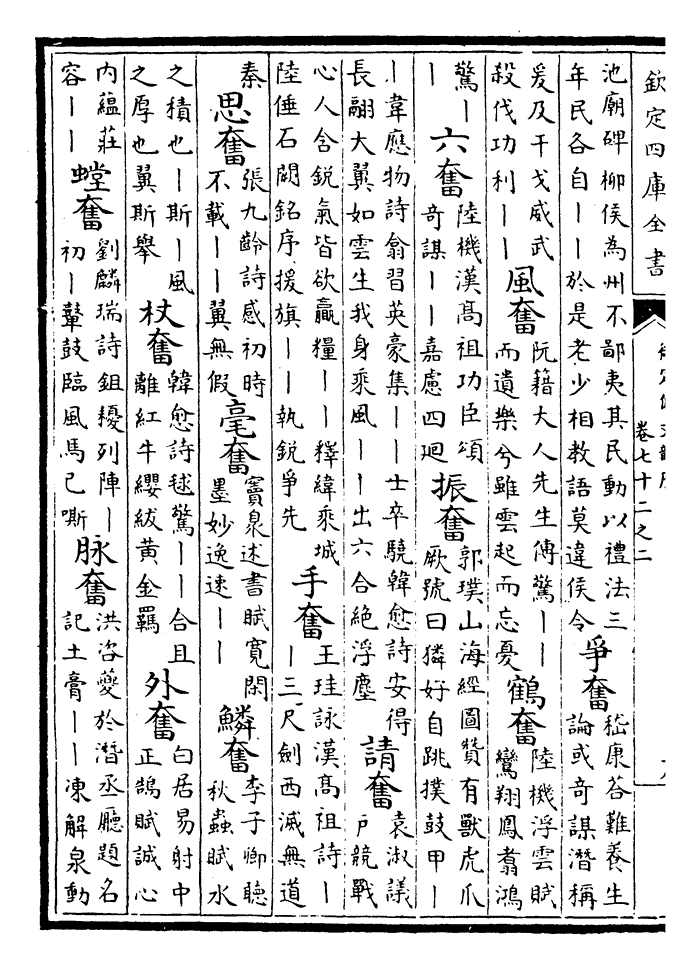 欽定四庫全書
卷七十二之二
池廟碑柳侯為州不鄙夷其民動以禮法三
年民各自丨丨於是老少相教語莫違侯令
爭奮
嵇康荅難養生
論或奇謀潛稱
爰及干戈威武
殺伐功利丨丨
風奮
阮籍大人先生傳驚丨丨
而遺樂兮雖雲起而忘憂
鶴奮
陸機浮雲賦
鸞翔鳳翥鴻
驚丨
丨
六奮
陸機漢髙祖功臣頌
奇謀丨丨嘉慮四迴
振奮
郭璞山海經圖贊有獸虎爪
厥號曰獜好自跳撲鼓甲丨
丨韋應物詩翕習英豪集丨丨士卒驍韓愈詩安得
長翮大翼如雲生我身乘風丨丨出六合絕浮塵
請奮
袁淑議
戶競戰
心人含銳氣皆欲贏糧丨丨釋緯乘城
陸倕石闕銘序援旗丨丨執銳爭先
手奮
王珪詠漢髙祖詩丨
丨三尺劍西滅無道
秦
思奮
張九齡詩感初時
不載丨丨翼無假
毫奮
竇泉述書賦寛閑
墨妙逸速丨丨
鱗奮
李子卿聽
秋蟲賦水
之積也丨斯丨風
之厚也翼斯舉
杖奮
韓愈詩毬驚丨丨合且
離紅牛纓紱黃金羈
外奮
白居易射中
正鵠賦誠心
内蘊莊
容丨丨
螳奮
劉麟瑞詩鉏耰列陣丨
初丨鼙鼓臨風馬已嘶
脉奮
洪咨夔於潛丞廳題名
記土膏丨丨凍解泉動